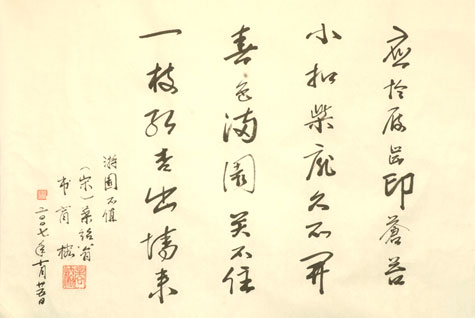 應怜屐齿印蒼苔
小扣柴扉久不開
春色满園关不住
一枝红杏出墙来
游園不值
（宋）葉绍翁
二〇〇七年十月廿五日